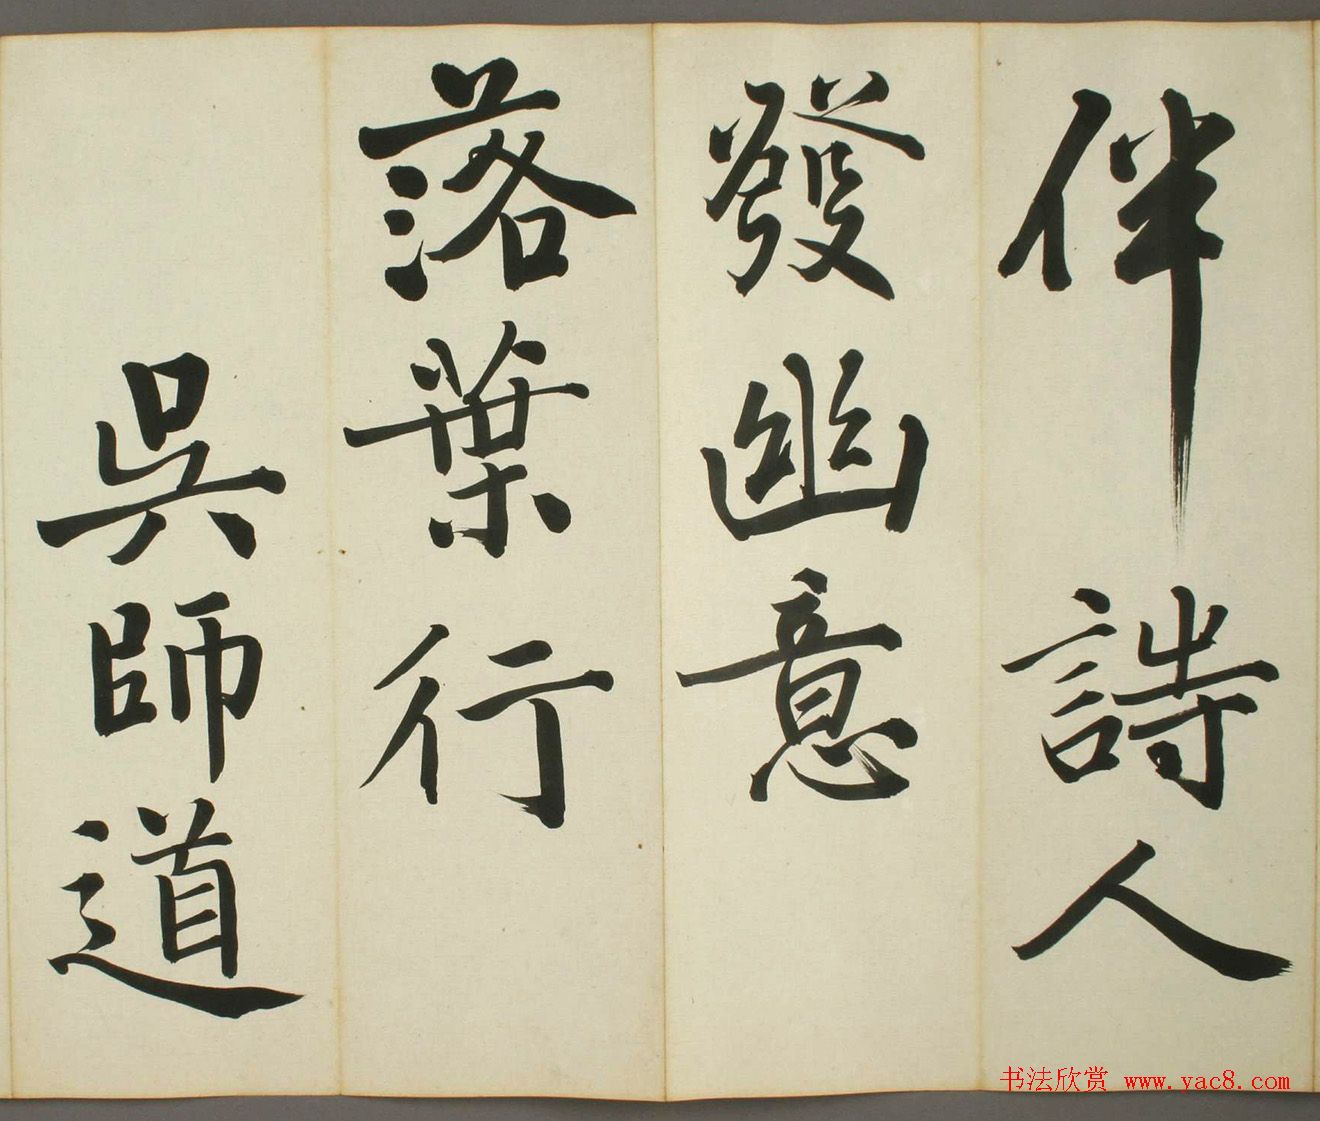 伴詩人
發幽意
落葉行
吳師道
书法欣赏 www.yac8.com